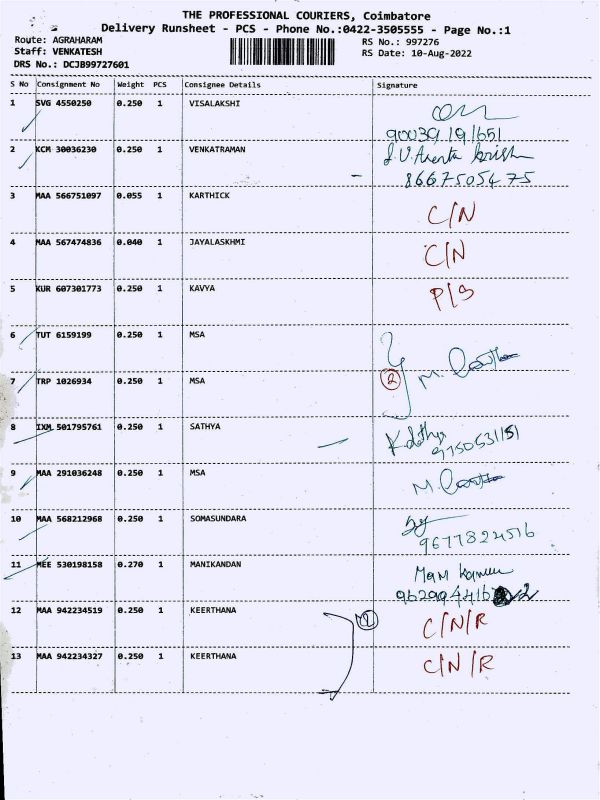 THE PROFESSIONAL COURIERS, Coimbatore
Delivery Runsheet - PCS - Phone No.:0422-3505555 - Page No.:1
Route: AGRAHARAM RS No.: 997276
Staff: VENKATESH RS Date: 10-Aug-2022
DRS No.: DCJB99727601
S No Consignment No Weight PCS Consignee Details Signature
1 SVG 4550250 0.250 1 VISALAKSHI
90039 191651
2 KCM 30036230 0.250 1 VENKATRAMAN
8667505475
3 MAA 566751097 0.055 1 KARTHICK C/N
4 MAA 567474836 0.040 1 JAYALASKHMI C/N
5 KUR 607301773 0.250 1 KAVYA P/S
6 TUT 6159199 0.250 1 MSA
7 TRP 1026934 0.250 1 MSA 2 M.
8 IXM 501795761 0.250 1 SATHYA
9750531151
9 MAA 291036248 0.250 1 MSA M.
10 MAA 568212968 0.250 1 SOMASUNDARA
9677824516
11 MEE 530198158 0.270 1 MANIKANDAN
12 MAA 942234519 0.250 1 KEERTHANA C/N/R
13 MAA 942234327 0.250 1 KEERTHANA C/N/R